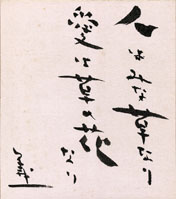 人はみな草なり
愛は草の花
なり